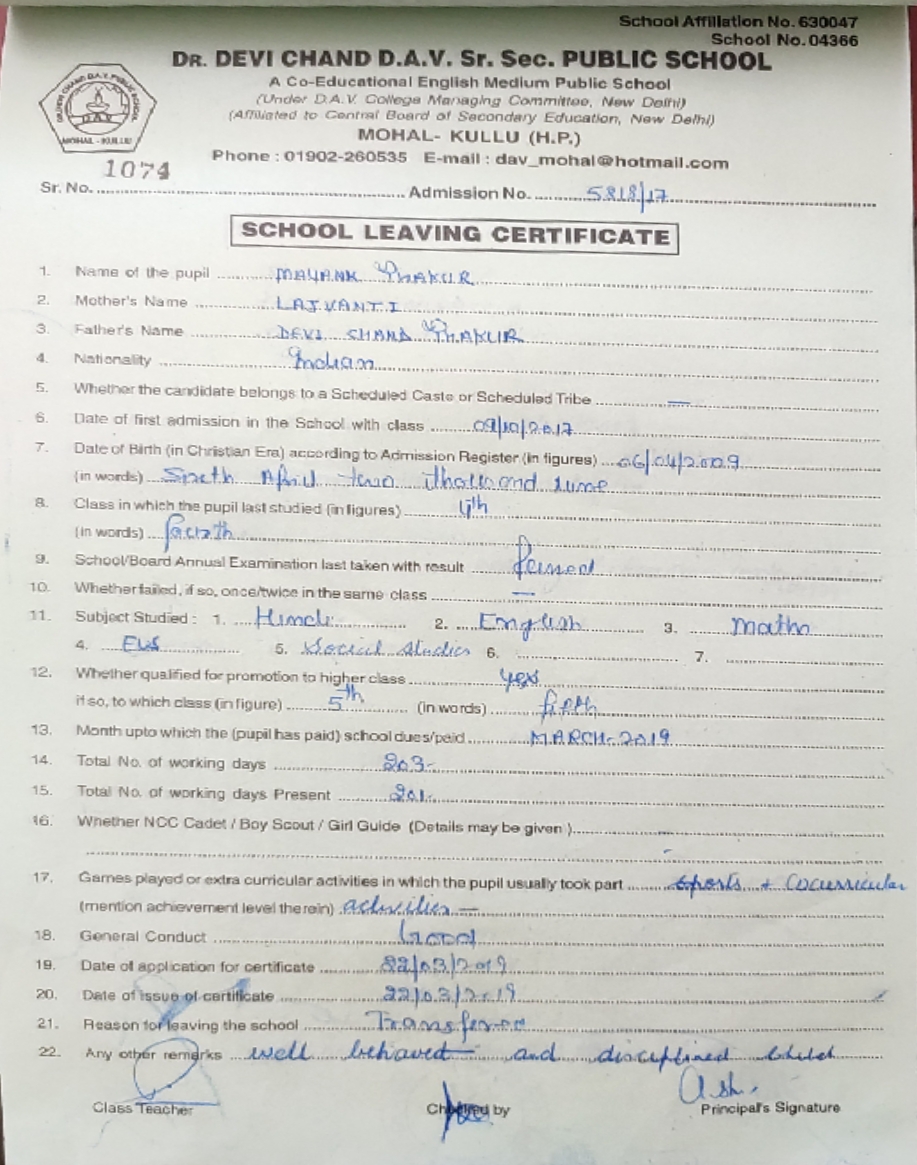 School Affiliation No. 630047
School No. 04366
DR. DEVI CHAND D.A.V. Sr. Sec. PUBLIC SCHOOL
A Co-Educational English Medium Public School
(Under D.A.V. College Managing Committee, New Delhi)
(Affiliated to Central Board of Secondary Education, New Delhi)
MOHAL- KULLU (H.P.)
Phone : 01902-260535 E-mail : dav_mohal@hotmail.com
D.A.V.
MOHAL - KULLU
1074
Sr. No. Admission No. 5818/17
SCHOOL LEAVING CERTIFICATE
1. Name of the pupil MAYANK THAKUR
2. Mother's Name LAJVANTI
3. Father's Name DEVI CHAND THAKUR
4. Nationality Indian
5. Whether the candidate belongs to a Scheduled Caste or Scheduled Tribe —
6. Date of first admission in the School with class 09/10/2017
7. Date of Birth (in Christian Era) according to Admission Register (in figures) 06/04/2009
(in words) Sixth April two thousand nine
8. Class in which the pupil last studied (in figures) 4th
(in words) fourth
9. School/Board Annual Examination last taken with result Passed
10. Whether failed, if so, once/twice in the same class —
11. Subject Studied : 1. Hindi 2. English 3. Maths
4. EVS 5. Social Studies 6. 7.
12. Whether qualified for promotion to higher class yes
if so, to which class (in figure) 5th (in words) fifth
13. Month upto which the (pupil has paid) school dues/paid MARCH-2019
14. Total No. of working days 203
15. Total No. of working days Present 201
16. Whether NCC Cadet / Boy Scout / Girl Guide (Details may be given )
17. Games played or extra curricular activities in which the pupil usually took part Sports + Cocurricular
(mention achievement level therein) activities —
18. General Conduct Good
19. Date of application for certificate 22/03/2019
20. Date of issue of certificate 22/03/2019
21. Reason for leaving the school Transfered
22. Any other remarks well behaved and disciplined child
Class Teacher Checked by Principal's Signature